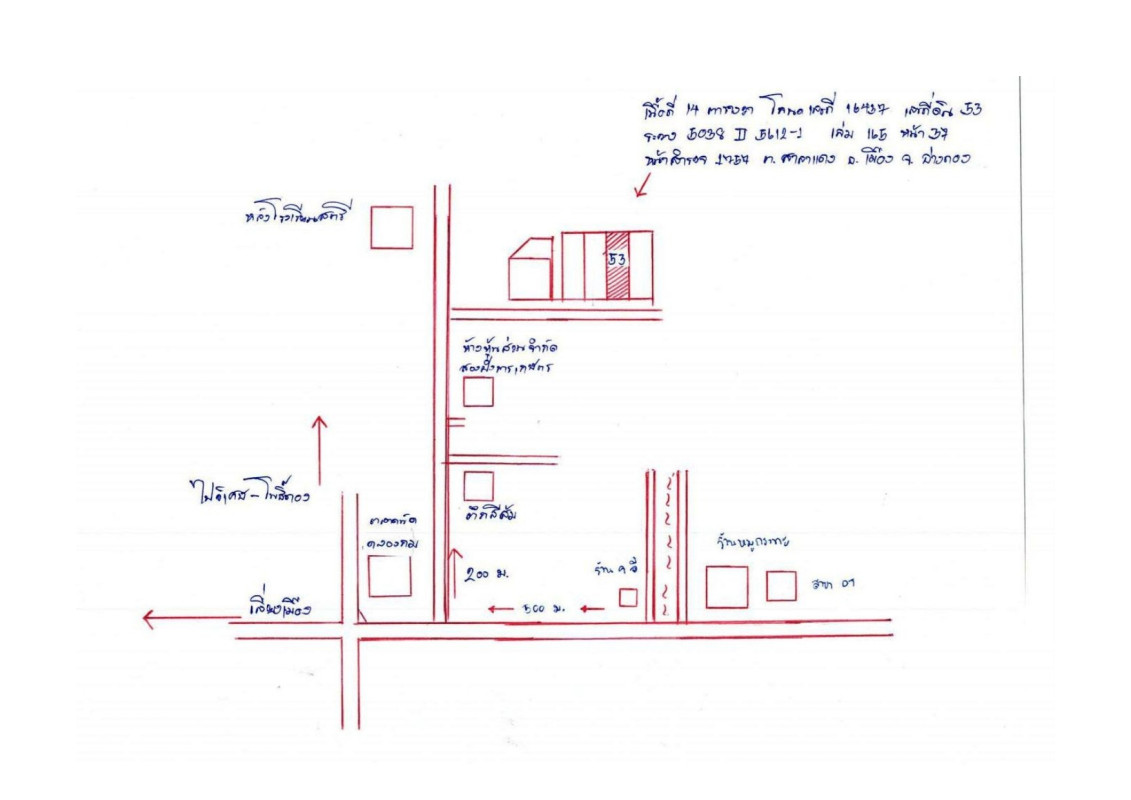 เนื้อที่ 14 ตารางวา โฉนดเลขที่ 16437 เลขที่ดิน 53
ระวาง 5038 II 5612-1 เล่ม 165 หน้า 37
หน้าสำรวจ ต. ศาลาแดง อ. เมือง จ. อ่างทอง
หลังโรงเรียนสตรี
53
ห้างหุ้นส่วนจำกัด
สองพี่การเกษตร
ไปวิเศษ-โพธิ์ทอง
ตึกสีส้ม
ตลาดนัด
คลองถม
200 ม.
ร้าน
ร้านหมูกระทะ
สาขา 01
เลี่ยงเมือง
500 ม.